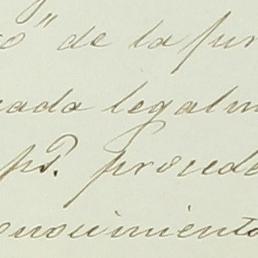 o" de la fun
uada legalm
ps. procede
onocimiento